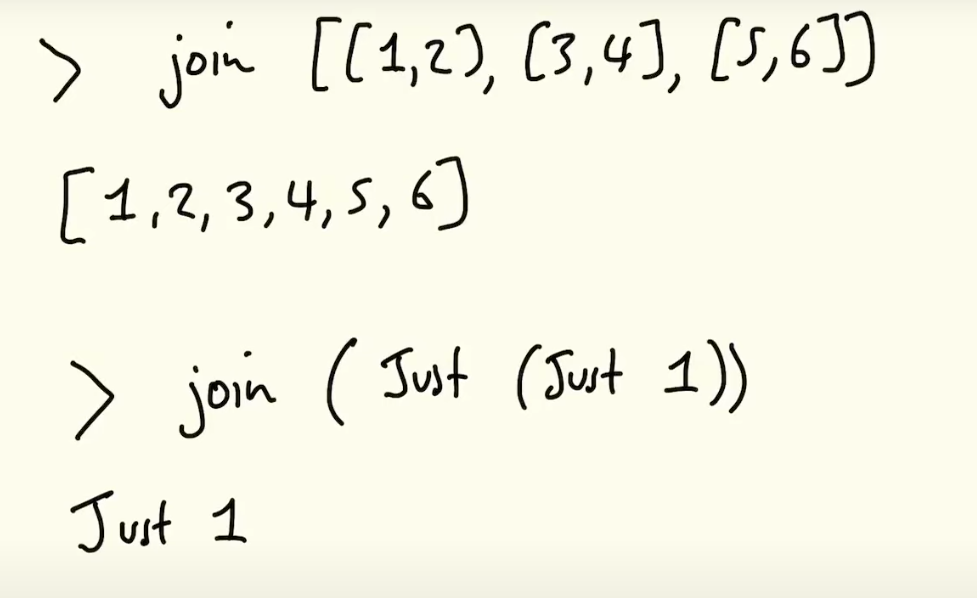 > join [[1,2], [3,4], [5,6]]
[1,2,3,4,5,6]
> join (Just (Just 1))
Just 1